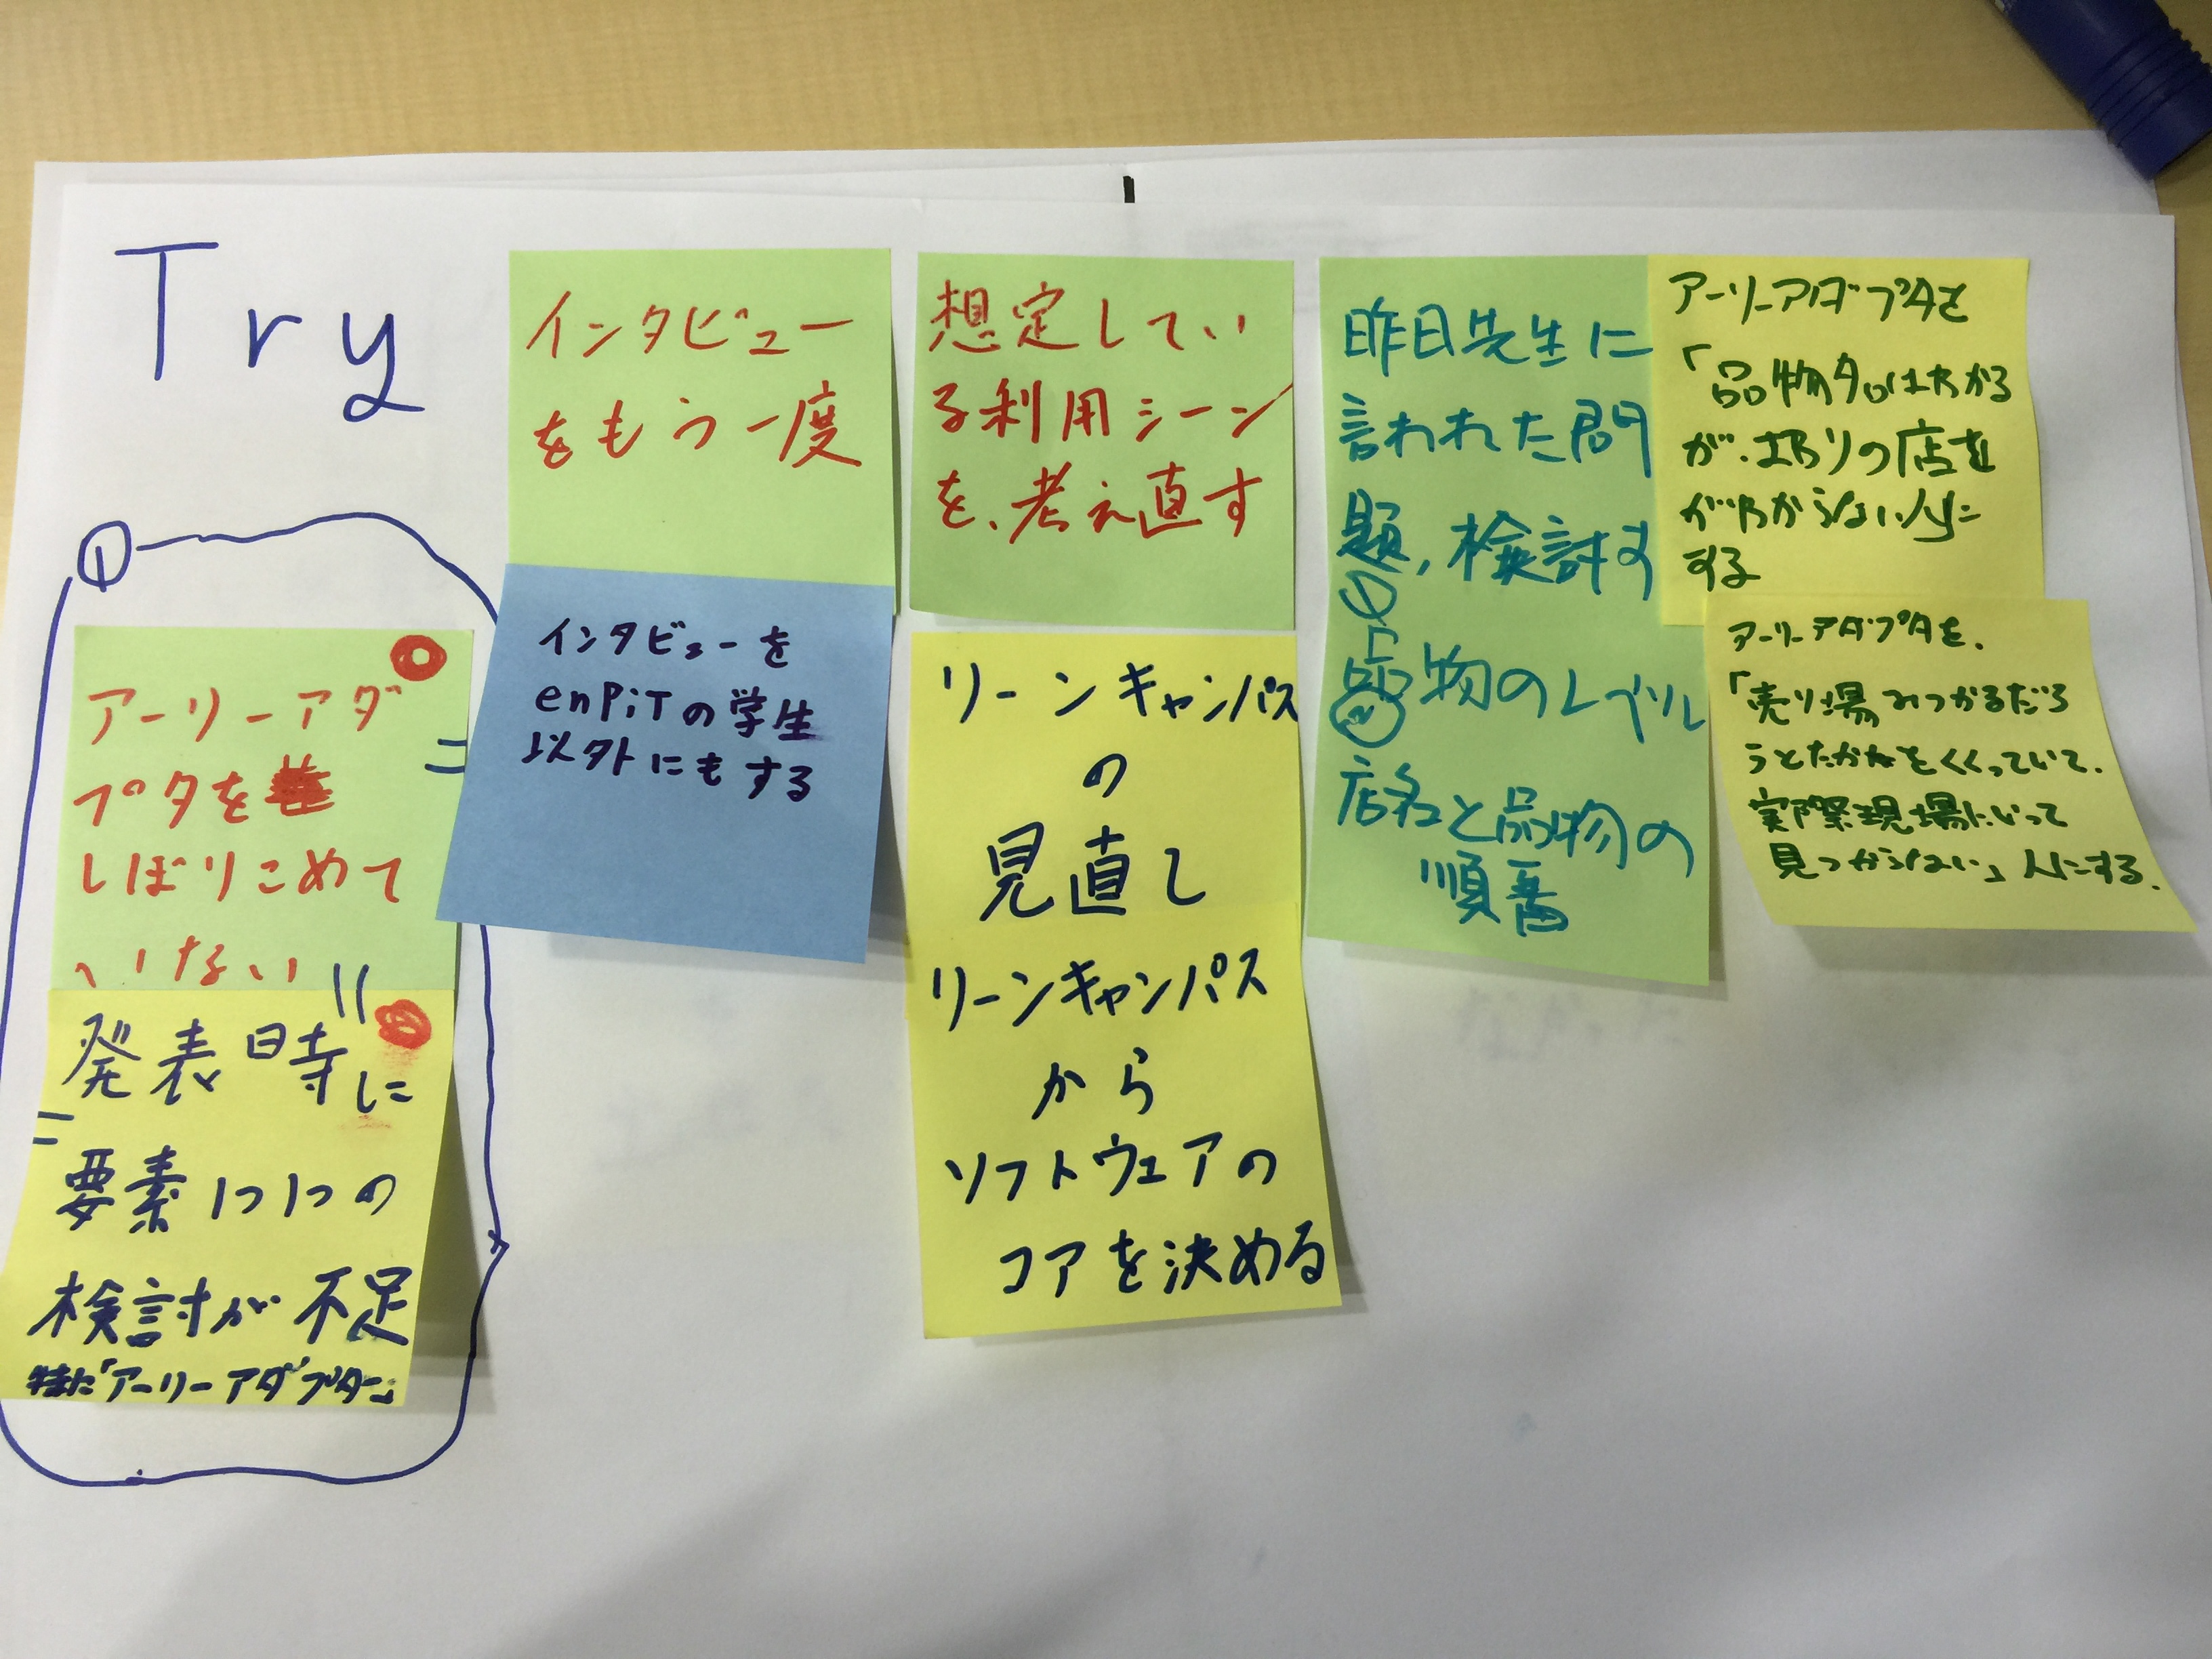 Try
①
アーリーアダ
プタを
しぼりこめて
いない
発表時に
要素1つ1つの
検討が不足
特に「アーリーアダプター」
インタビュー
をもう一度
インタビューを
enPiTの学生
以外にもする
想定してい
る利用シーン
を、考え直す
リーンキャンパス
の
見直し
リーンキャンパス
から
ソフトウェアの
コアを決める
昨日先生に
言われた問
題、検討する
① 品物のレベル
② 店名と品物の
順番
アーリーアダプタを
「品物名はわかる
が、エタリの店を
がわからない人」に
する
アーリーアダプタを、
「売り場みつかるだろ
うとたかをくくっていて、
実際現場にいって
見つからない」人にする.